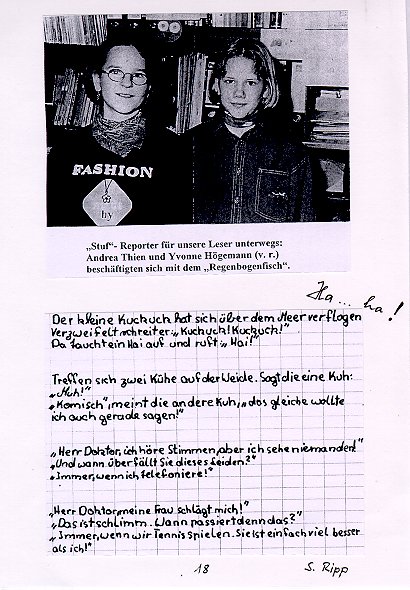 FASHION
by
„Stuf“- Reporter für unsere Leser unterwegs:
Andrea Thien und Yvonne Högemann (v. r.)
beschäftigten sich mit dem „Regenbogenfisch“.
Ha... ha!
Der kleine Kuckuck hat sich über dem Meer verflogen
Verzweifelt schreit er: „Kuckuck! Kuckuck!“
Da taucht ein Hai auf und ruft: „Hai!“
Treffen sich zwei Kühe auf der Weide. Sagt die eine Kuh:
„Muh!“
„Komisch“, meint die andere Kuh, „das gleiche wollte
ich auch gerade sagen!“
„Herr Doktor, ich höre Stimmen, aber ich sehe niemanden!“
„Und wann überfällt Sie dieses Leiden?“
„Immer, wenn ich telefoniere!“
„Herr Doktor, meine Frau schlägt mich!“
„Das ist schlimm. Wann passiert denn das?“
„Immer, wenn wir Tennis spielen. Sie ist einfach viel besser
als ich!“
18
S. Ripp